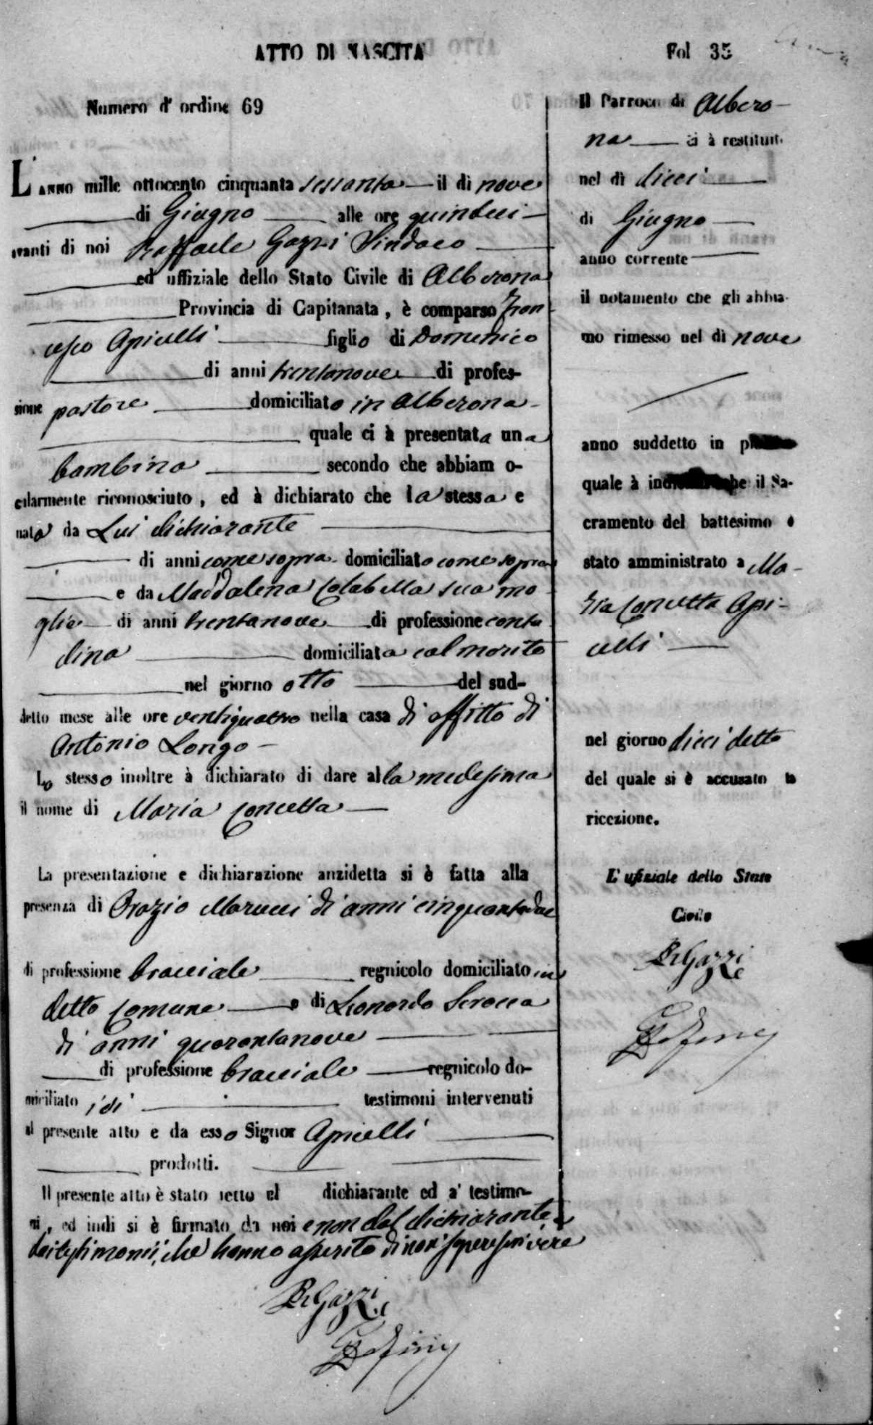 ATTO DI NASCITA
Fol 35
Numero d' ordine 69
L'ANNO mille ottocento cinquanta sessanta il dì nove
di Giugno alle ore quindici
avanti di noi Raffaele Gozzi Sindaco
ed uffiziale dello Stato Civile di Alberona
Provincia di Capitanata, è comparso Fran-
cesco Apicelli figlio di Domenico
di anni trentanove di profes-
sione pastore domiciliato in Alberona
quale ci à presentata una
bambina secondo che abbiam o-
cularmente riconosciuto, ed à dichiarato che la stessa e
nata da Lui dichiarante
di anni come sopra domiciliato come sopra
e da Maddalena Colabella sua mo
glie di anni trentanove di professione conta
dina domiciliata col marito
nel giorno otto del sud-
detto mese alle ore ventiquattro nella casa di affitto di
Antonio Longo
Lo stesso inoltre à dichiarato di dare alla medesima
il nome di Maria Concetta
La presentazione e dichiarazione anzidetta si è fatta alla
presenza di Orazio Marucci di anni cinquantadue
di professione bracciale regnicolo domiciliato in
detto Comune e di Leonardo Scrocca
di anni quarantanove
di professione bracciale regnicolo do-
miciliato ivi testimoni intervenuti
al presente atto e da esso Signor Apicelli
prodotti.
Il presente atto è stato letto al dichiarante ed a' testimo-
ni, ed indi si è firmato da noi e non dal dichiarante e
dai testimonii, che hanno asserito di non saper scrivere
R Gozzi
Il Parroco di Albero-
na ci à restituito
nel dì dieci
di Giugno
anno corrente
il notamento che gli abbia-
mo rimesso nel dì nove
anno suddetto in
quale à il Sa-
cramento del battesimo è
stato amministrato a Ma-
ria Concetta Api-
celli
nel giorno dieci detto
del quale si è accusato la
ricezione.
L'ufiziale dello Stato
Civile
R Gozzi